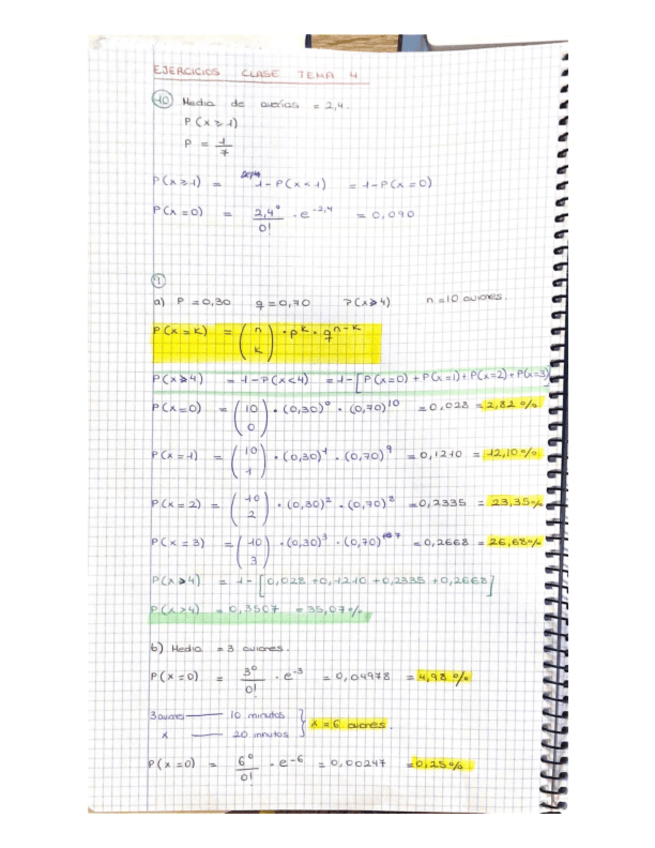 EJERCICIOS CLASE TEMA 4
10 Media de averías = 2,4.
P(x≥1)
P = 1/7
P(x≥1) = 1-P(x<1) = 1-P(x=0)
P(x=0) = 2,4⁰/0! · e^-2,4 = 0,090
9
a) P=0,30 q=0,70 P(x≥4) n=10 aviones.
P(x=k) = (n k) · p^k · q^n-k
P(x≥4) = 1-P(x<4) = 1-[P(x=0)+P(x=1)+P(x=2)+P(x=3)]
P(x=0) = (10 0) · (0,30)⁰ · (0,70)¹⁰ =0,028 = 2,82%
P(x=1) = (10 1) · (0,30)¹ · (0,70)⁹ =0,1210 = 12,10%
P(x=2) = (10 2) · (0,30)² · (0,70)⁸ =0,2335 = 23,35%
P(x=3) = (10 3) · (0,30)³ · (0,70)⁷ =0,2668 = 26,68%
P(x≥4) = 1-[0,028+0,1210+0,2335+0,2668]
P(x>4) = 0,3507 = 35,07%
b) Media = 3 aviones.
P(x=0) = 3⁰/0! · e^-3 = 0,04978 = 4,98%
3 aviones — 10 minutos
x — 20 minutos } x=6 aviones.
P(x=0) = 6⁰/0! · e^-6 = 0,00247 =0,25%